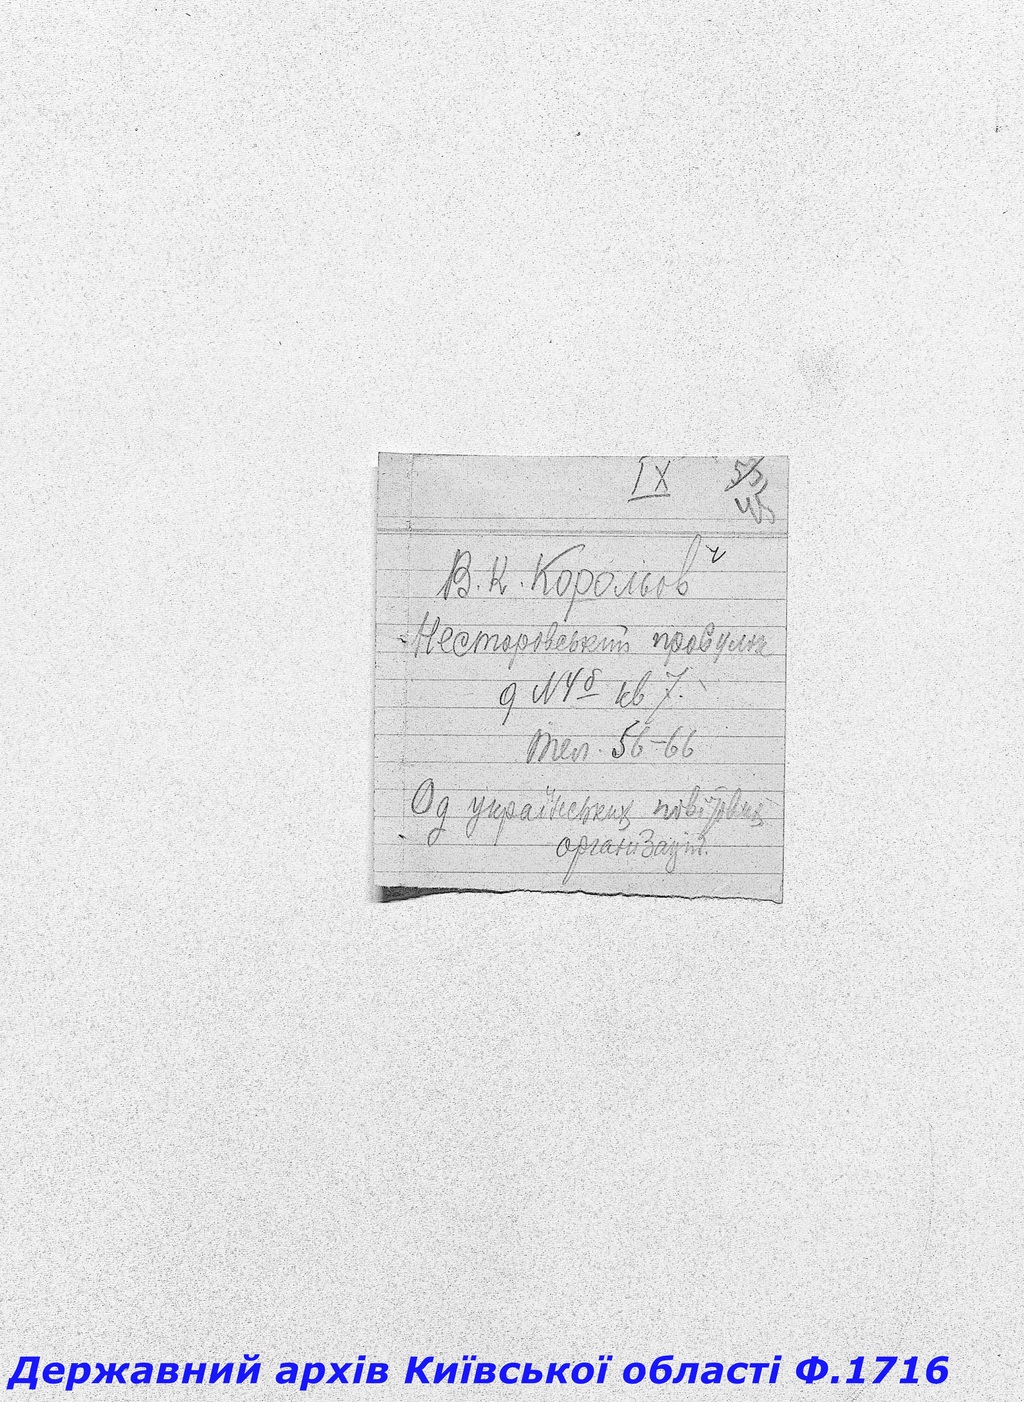 IX
53
45
В. К. Корольов
Несторовський провулок
д №4б кв 7.
тел. 56-66
Од українських повітових
організацій.
Державний архів Київської області Ф.1716